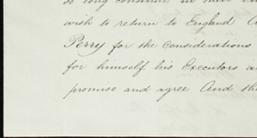 so long continue in
wish to return to England
Perry for the considerations
for himself his Executors
promise and agree And